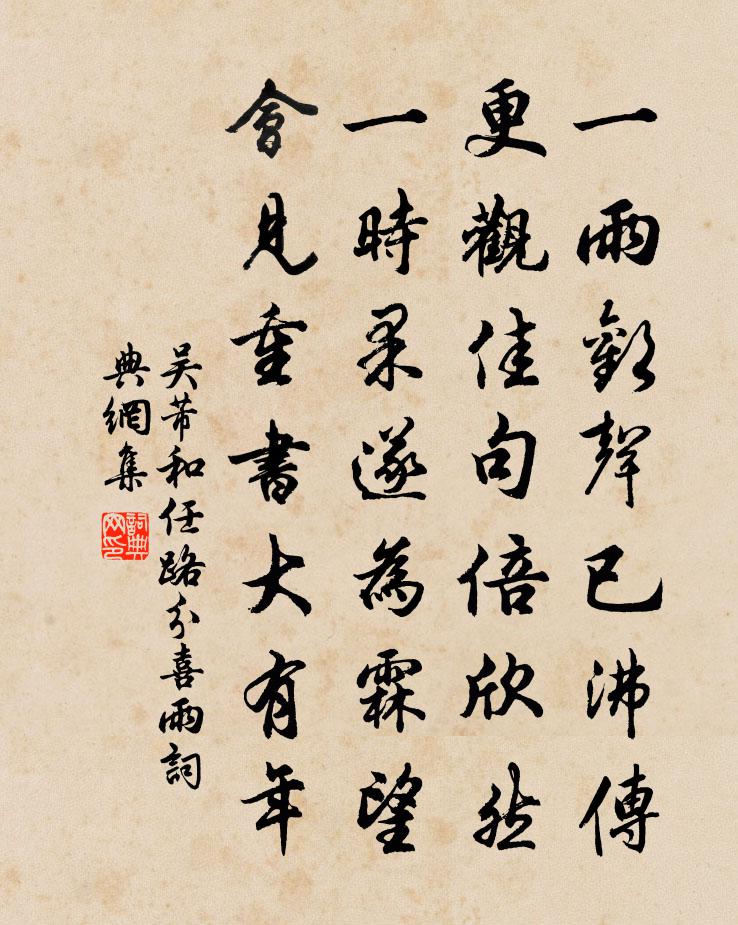 一雨歡聲已沸傳
更觀佳句倍欣然
一時果遂為霖望
會見重書大有年
吴芾和任路分喜雨詞
典網集
詞典网印